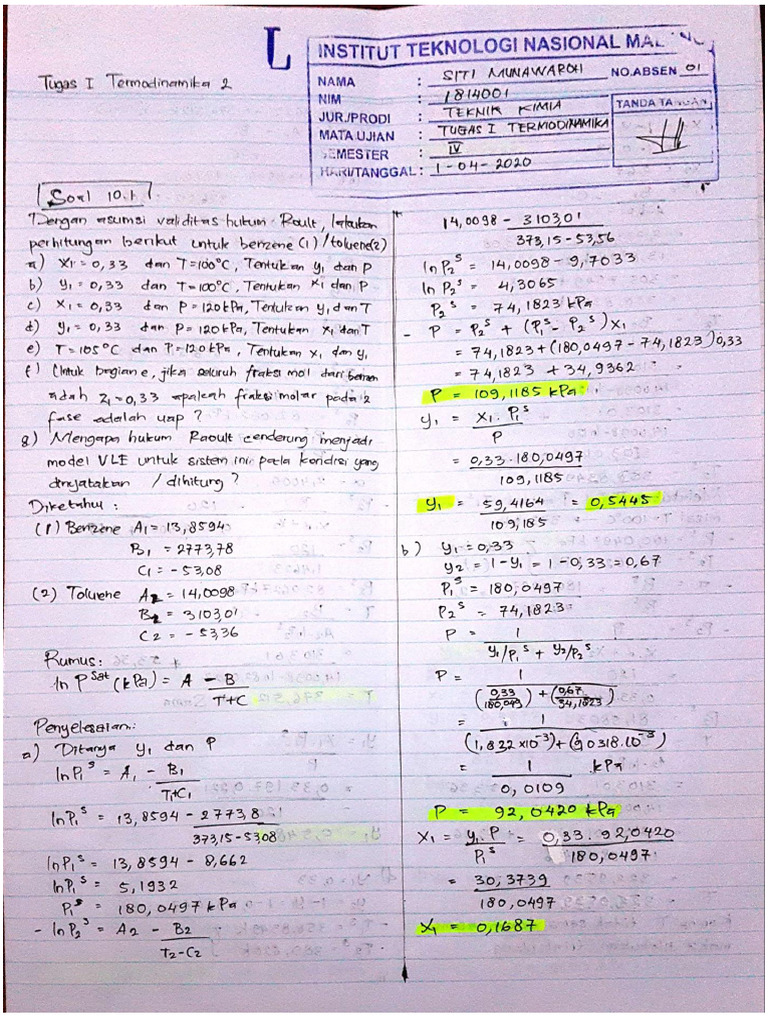 L
INSTITUT TEKNOLOGI NASIONAL MAL
NAMA : SITI MUNAWAROH NO.ABSEN 01
NIM : 1814001
JUR./PRODI : TEKNIK KIMIA
TANDA TANGAN
MATA UJIAN : TUGAS I TERMODINAMIKA
SEMESTER : IV
HARI/TANGGAL : 1-04-2020
Tugas I Termodinamika 2
Soal 10.1
Dengan asumsi validitas hukum Roult, lakukan
perhitungan berikut untuk benzene (1) / toluene (2)
a) X1 = 0,33 dan T = 100°C, Tentukan y1 dan P
b) y1 = 0,33 dan T = 100°C, Tentukan X1 dan P
c) X1 = 0,33 dan P = 120 kPa, Tentukan y1 dan T
d) y1 = 0,33 dan P = 120 kPa, Tentukan X1 dan T
e) T = 105°C dan P = 120 kPa, Tentukan X1 dan y1
f) Untuk bagian e, jika seluruh fraksi mol dari benzen
adah Z1 = 0,33 apakah fraksi molar pada 2
fase adalah uap ?
g) Mengapa hukum Raoult cenderung menjadi
model VLE untuk sistem ini pada kondisi yang
dinyatakan / dihitung ?
Diketahui :
(1) Benzene A1 = 13,8594
B1 = 2773,78
C1 = -53,08
(2) Toluene A2 = 14,0098
B2 = 3103,01
C2 = -53,36
Rumus :
ln P^sat (kPa) = A - B
T + C
Penyelesaian :
a) Ditanya y1 dan P
ln P1^s = A1 - B1
T1+C1
ln P1^s = 13,8594 - 2773,8
373,15 - 53,08
ln P1^s = 13,8594 - 8,662
ln P1^s = 5,1932
P1^s = 180,0497 kPa
- ln P2^s = A2 - B2
T2-C2
14,0098 - 3103,01
373,15 - 53,56
ln P2^s = 14,0098 - 9,7033
ln P2^s = 4,3065
P2^s = 74,1823 kPa
- P = P2^s + (P1^s - P2^s) X1
= 74,1823 + (180,0497 - 74,1823) 0,33
= 74,1823 + 34,9362
P = 109,1185 kPa
y1 = X1 . P1^s
P
= 0,33 . 180,0497
109,1185
y1 = 59,4164 = 0,5445
109,185
b) y1 = 0,33
y2 = 1 - y1 = 1 - 0,33 = 0,67
P1^s = 180,0497
P2^s = 74,1823
P = 1
y1/P1^s + y2/P2^s
P = 1
(0,33/180,049) + (0,67/34,1823)
= 1
(1,832 x 10^-3) + (9,0318.10^-3)
= 1 kPa
0,0109
P = 92,0420 kPa
X1 = y1 . P = 0,33 . 92,0420
P1^s 180,0497
= 30,3739
180,0497
X1 = 0,1687